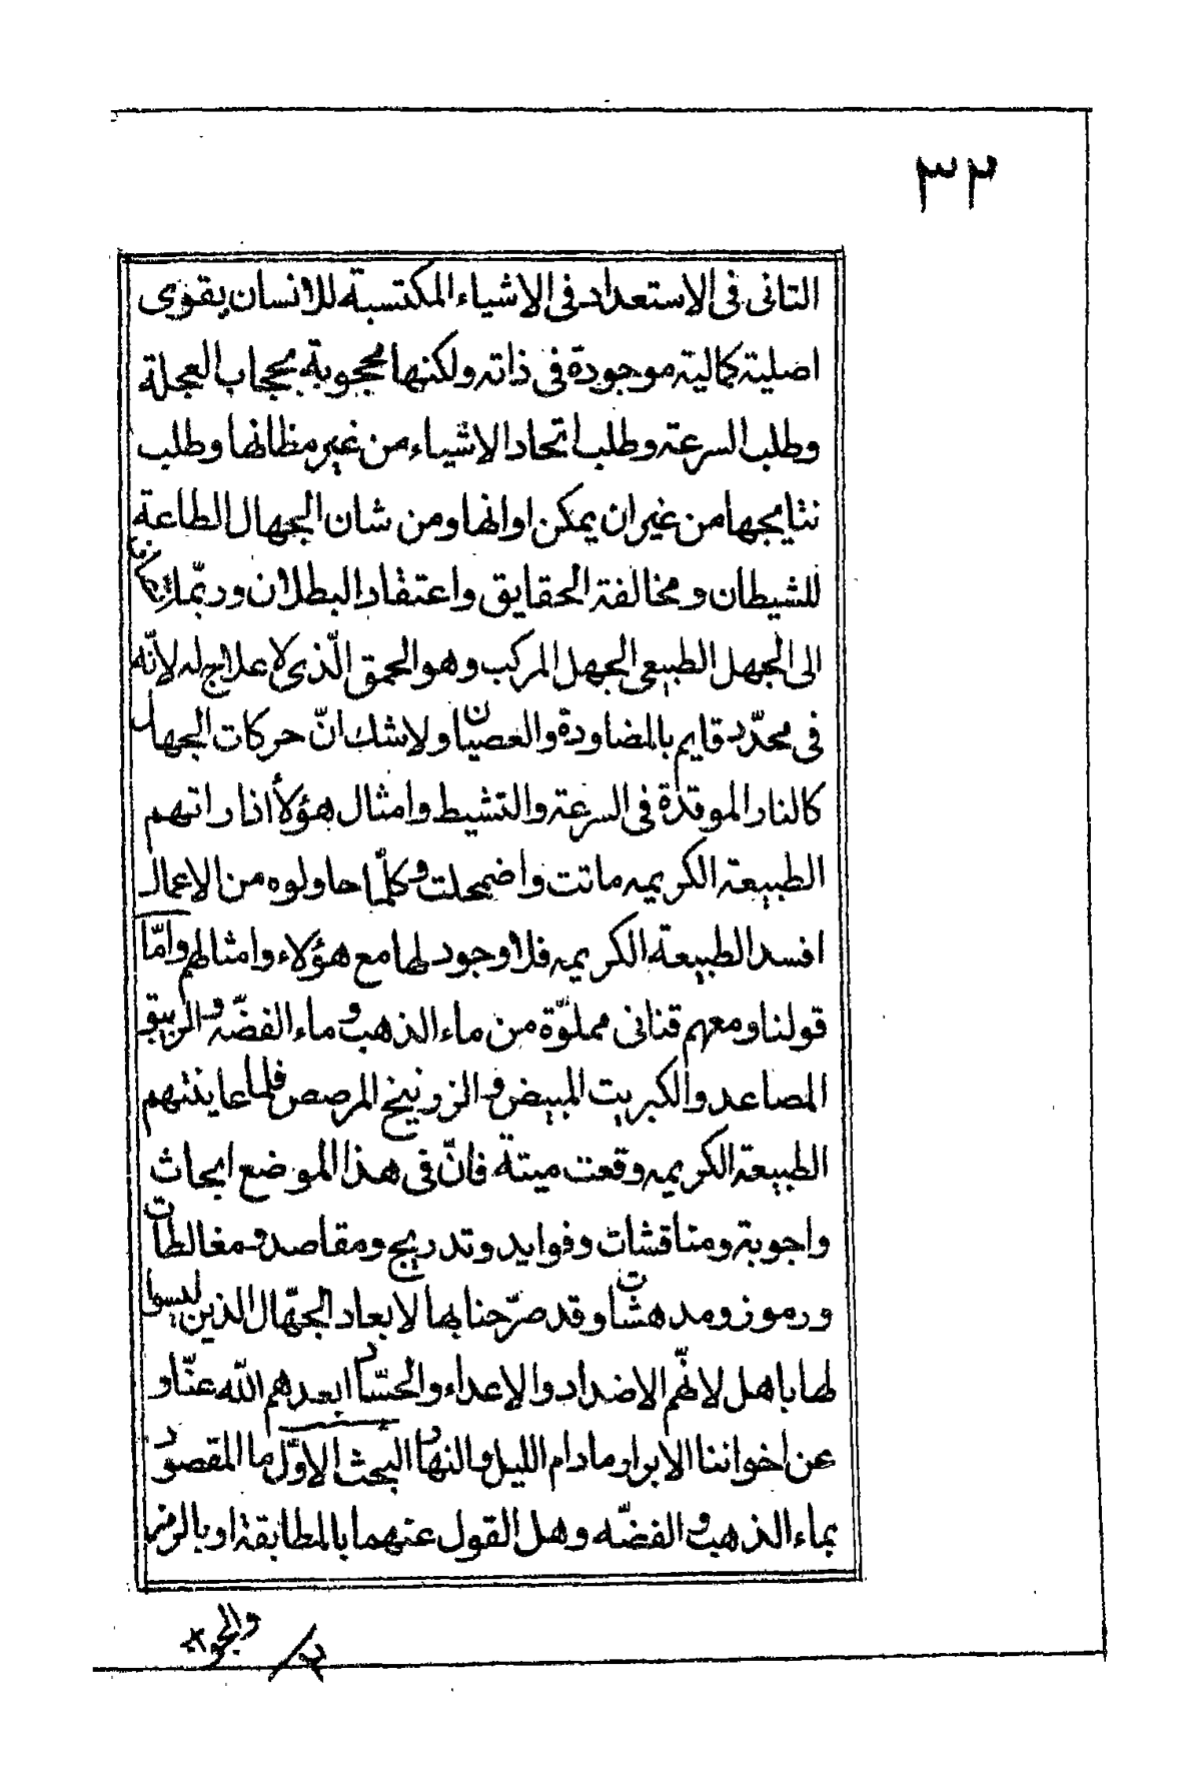 ٣٢
التانى فى الاستعداد فى الاشياء المكتسبة للانسان بقوى
اصلية كمالية موجودة فى ذاته ولكنها محجوبة بحجاب العجلة
وطلب السرعة وطلب اتحاد الاشياء من غير مظانها وطلب
نتايجها من غير ان يمكن اوانها ومن شان الجهال الطاعة
للشيطان ومخالفة الحقايق واعتقاد البطلان وربّما
الى الجهل الطبيعى الجهل المركب وهو الحمق الّذى لا علاج له لانّه
فى محدّد قايم بالمضاودة والعصيان ولا شك انّ حركات الجهال
كالنار الموقدة فى السرعة والتشيط وامثال هؤلأ اذا راتهم
الطبيعة الكريمه ماتت واضمحلت وكلّما حاولوه من الاعمال
افسد الطبيعة الكريمه فلا وجود لها مع هؤلاء وامثالهم وامّا
قولنا ومعهم قنانى مملوّة من ماء الذهب وماء الفضّه والزيبق
المصاعد والكبريت المبيض والزرنيخ المرصص فلما عاينتهم
الطبيعة الكريمه وقعت ميتة فانّ فى هذا الموضع ابحاث
واجوبة ومناقشات وفوايد وتدريج ومقاصد ومغالطات
ورموز ومدهشات وقد صرّحنا بها لابعاد الجهّال الذين ليسوا
لها باهل لانّهم الاضداد والاعداء والحسّاد ابعدهم الله عنّا و
عن اخواننا الابرار ما دام الليل والنهار البحث الاوّل ما المقصود
بماء الذهب والفضّه وهل القول عنهما بالمطابقة او بالرمز
والجواب